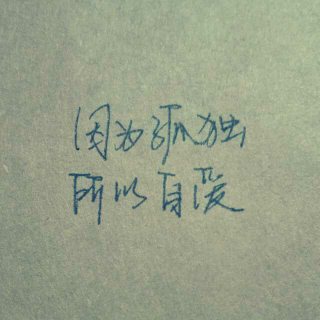 因为孤独
所以自爱